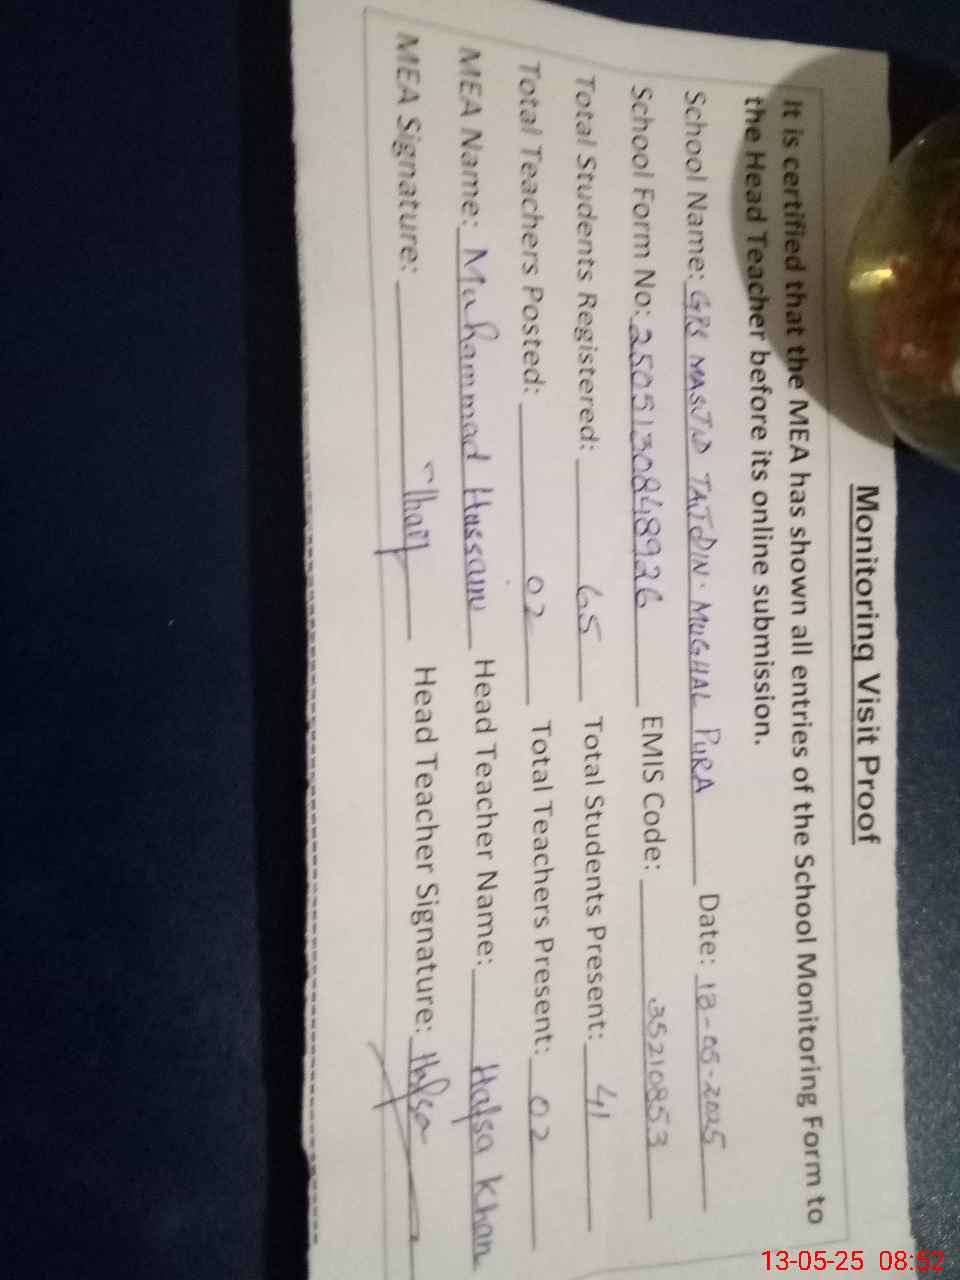 Monitoring Visit Proof
It is certified that the MEA has shown all entries of the School Monitoring Form to
the Head Teacher before its online submission.
School Name: GPS MASJID TAJDIN. MUGHAL PURA Date: 13-05-2025
School Form No: 2505130848926 EMIS Code: 35210853
Total Students Registered: 65 Total Students Present: 41
Total Teachers Posted: 02 Total Teachers Present: 02
MEA Name: Muhammad Hassam Head Teacher Name: Hafsa Khan
MEA Signature: Head Teacher Signature: Hafsa
13-05-25 08:52